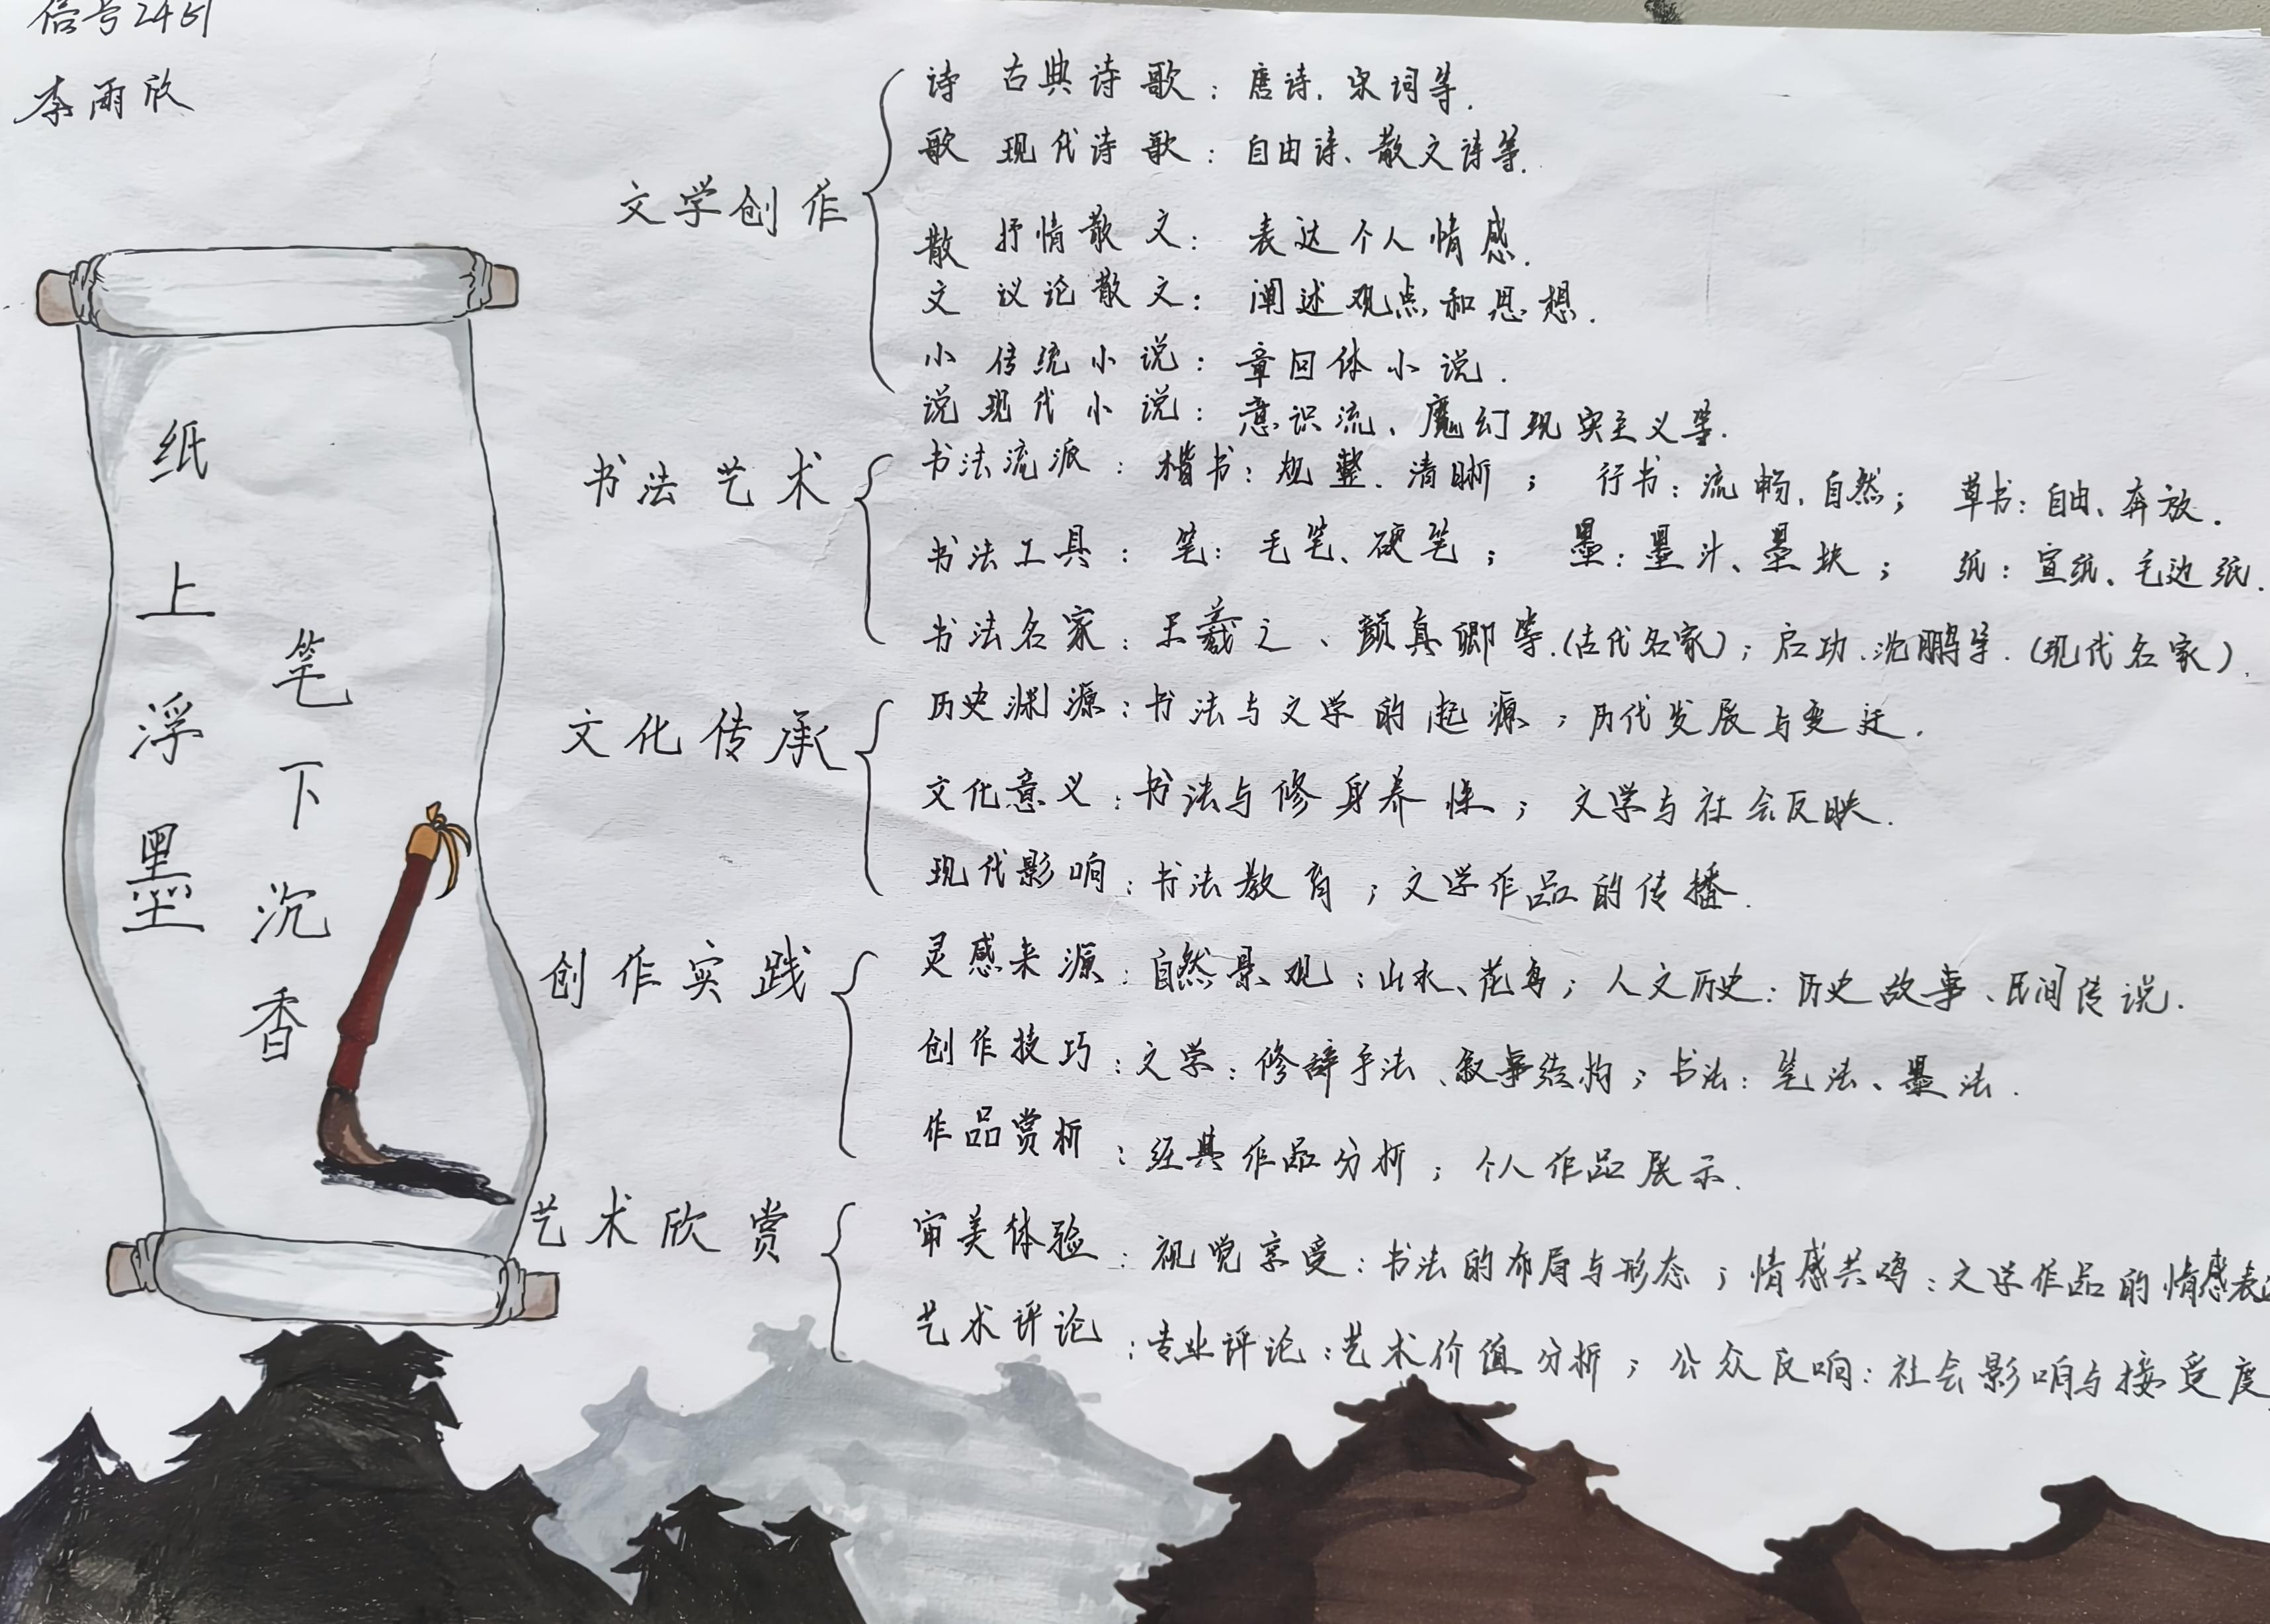 信号2461
李雨欣
纸上浮墨
笔下沉香
文学创作
诗 古典诗歌：唐诗、宋词等.
歌 现代诗歌：自由诗、散文诗等.
散 抒情散文：表达个人情感.
文 议论散文：阐述观点和思想.
小 传统小说：章回体小说.
说 现代小说：意识流、魔幻现实主义等.
书法艺术
书法流派：楷书：规整、清晰；行书：流畅、自然；草书：自由、奔放.
书法工具：笔：毛笔、硬笔；墨：墨汁、墨块；纸：宣纸、毛边纸.
书法名家：王羲之、颜真卿等.(古代名家)；启功、沈鹏等.(现代名家).
文化传承
历史渊源：书法与文学的起源；历代发展与变迁.
文化意义：书法与修身养性；文学与社会反映.
现代影响：书法教育；文学作品的传播.
创作实践
灵感来源：自然景观：山水、花鸟；人文历史：历史故事、民间传说.
创作技巧：文学：修辞手法、叙事结构；书法：笔法、墨法.
作品赏析：经典作品分析；个人作品展示.
艺术欣赏
审美体验：视觉享受：书法的布局与形态；情感共鸣：文学作品的情感表达
艺术评论：专业评论：艺术价值分析；公众反响：社会影响与接受度.